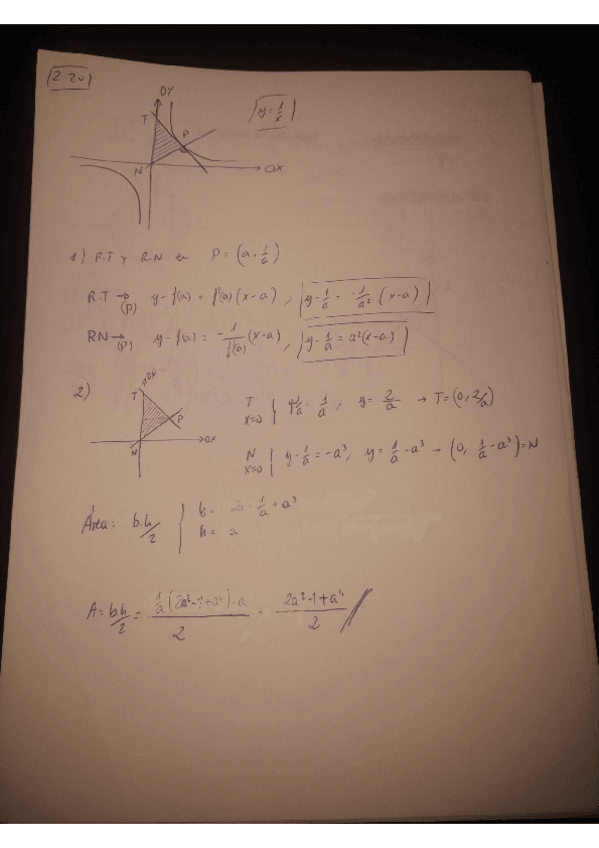 2.20
OY
T
y=1/x
P
N
OX
1) R.T y R.N en P=(a, 1/a)
R.T →(P) y-f(a) = f'(a)(x-a); y-1/a = -1/a² (x-a)
RN →(P) y-f(a) = -1/f'(a) (x-a), y-1/a = a²(x-a)
2)
OY
T
P
N
OX
T x=0 | y-1/a = 1/a; y=2/a → T=(0, 2/a)
N x=0 | y-1/a = -a³, y = 1/a - a³ → (0, 1/a - a³)=N
Área: b.h/2 | b= - 1/a + a³
h= a
A= b.h/2 = 1/a(2a²-1+a⁴)·a / 2 = 2a²-1+a⁴ / 2